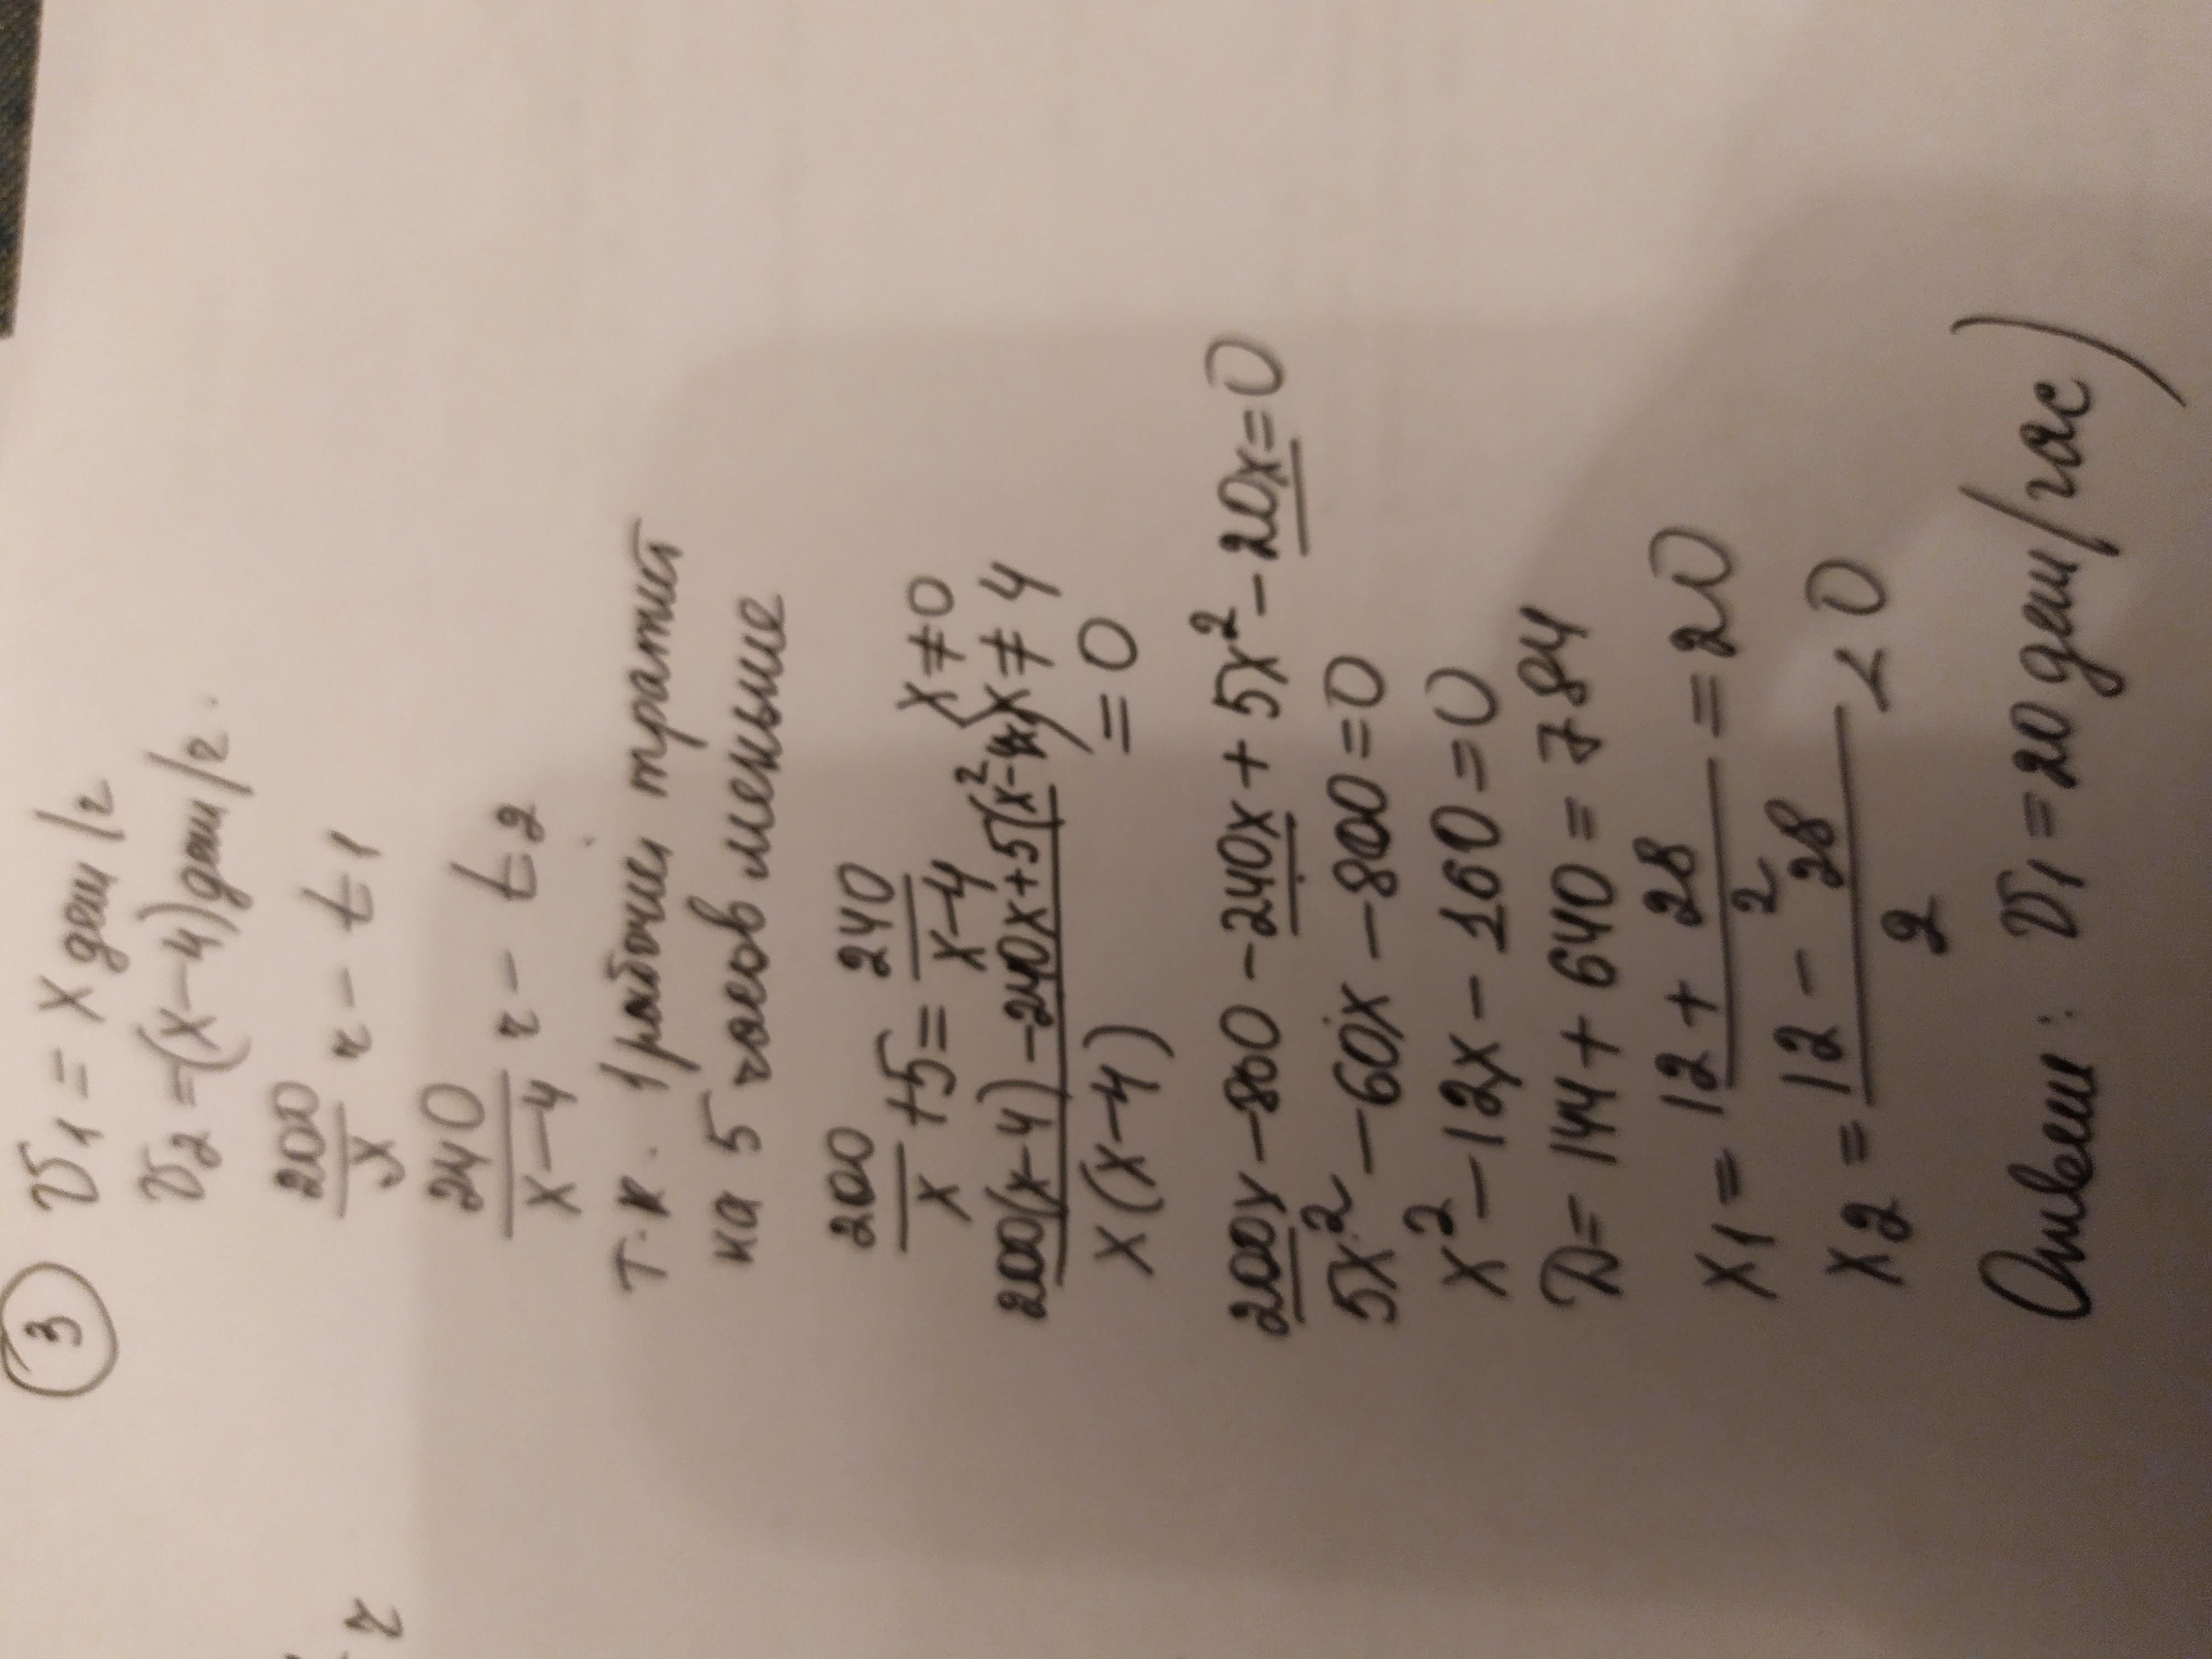 ③ V₁ = x дет/г
V₂ = (x-4) дет/г.
200/x г - t₁
240/(x-4) г - t₂
т.к. 1 рабочий тратит
на 5 часов меньше
200/x + 5 = 240/(x-4) x ≠ 0
x ≠ 4
(200(x-4) - 240x + 5(x² - 4x))/(x(x-4)) = 0
200x - 800 - 240x + 5x² - 20x = 0
5x² - 60x - 800 = 0
x² - 12x - 160 = 0
D = 144 + 640 = 784
x₁ = (12 + 28)/2 = 20
x₂ = (12 - 28)/2 < 0
Ответ: V₁ = 20 дет/час)
г